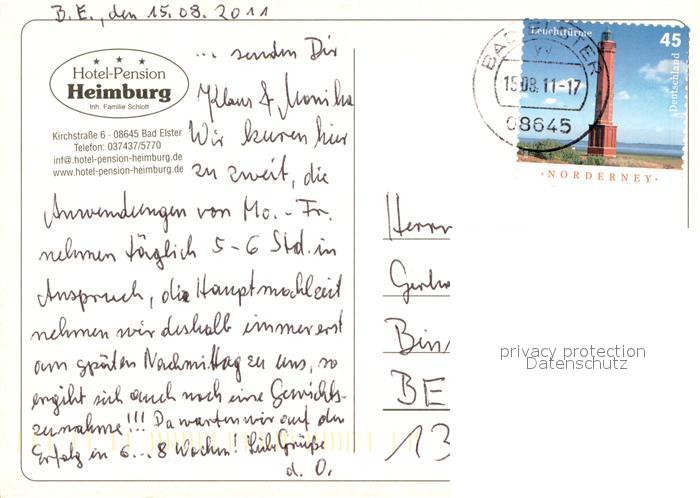 B.E., den 15.08.2011
Hotel-Pension
Heimburg
Inh. Familie Schlott
Kirchstraße 6 · 08645 Bad Elster
Telefon: 037437/5770
inf@.hotel-pension-heimburg.de
www.hotel-pension-heimburg.de
... senden Dir
Klaus & Monika
Wir kuren hier
zu zweit, die
Anwendungen von Mo.-Fr.
nehmen täglich 5-6 Std. in
Anspruch, die Hauptmahlzeit
nehmen wir deshalb immer erst
am späten Nachmittag zu uns, so
ergibt sich auch noch eine Gewichts-
zunahme!!! Da warten wir auf den
Erfolg in 6...8 Wochen! Liebe Grüße
d. O.
Leuchttürme
45
Deutschland
NORDERNEY
BAD ELSTER
15.08.11-17
08645
Herrn
Gerha
Bin
BE
13
privacy protection
Datenschutz